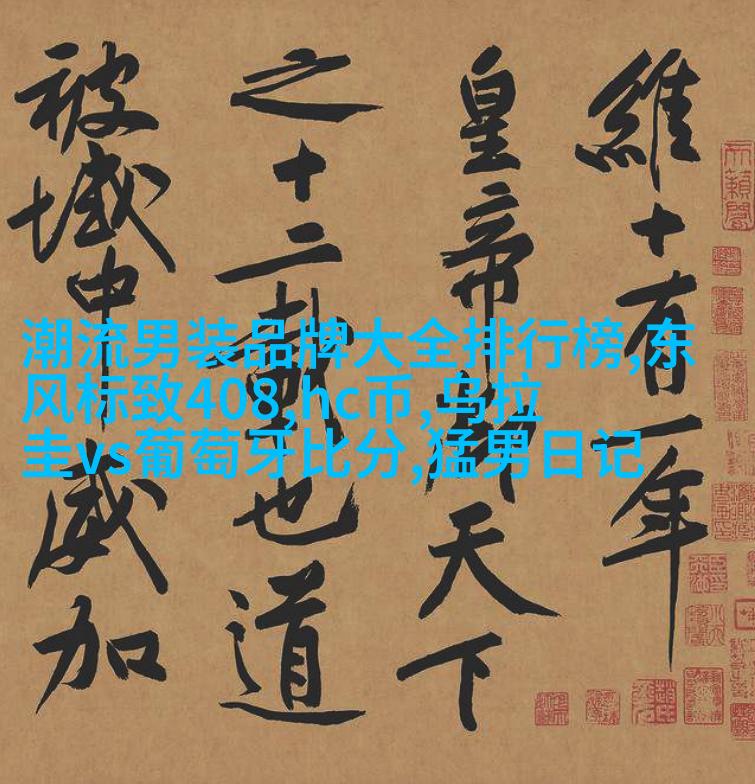 維十有一年
皇帝御天下
之十二載也道
被域中威加
潮流男装品牌大全排行榜,东
风标致408,hc币,乌拉
圭vs葡萄牙比分,猛男日记